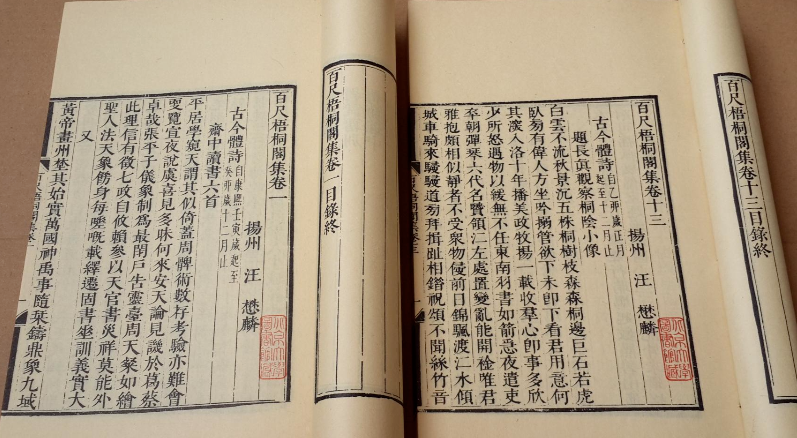 百尺梧桐閣集卷一目錄終
百尺梧桐閣集卷一
揚州 汪 懋麟
古今體詩 自康熙壬寅歲起至
癸卯歲十二月止
齋中讀書六首
平居學宛天謂其似倚蓋周髀術數存考驗亦難會
要覽宣夜說虞喜見多昧何來安天論見譏於葛蔡
卓哉張平子儀象制為最閉戶告靈臺周天粲如繪
此理信有徵七政自攸賴參以天官書災祥莫能外
聖人法天象飭身每嘅載繹遷固書坐訓義實大
又
黃帝畫州埜其始實萬國神禹事隨栞鑄鼎象九域
百尺梧桐閣集卷十三目錄終
百尺梧桐閣集卷十三
揚州 汪 懋麟
古今體詩 自乙卯歲正月
起至十二月止
題長真觀察桐陰小像
白雲不流秋景沉五株桐樹枝森森桐邊巨石若虎
臥芻有偉人方坐吟搦管欲下未即下看君用意何
其深入洛十年播美政牧揚一載收羣心即事多欣
少所怒遇物以緩無不任東南羽書如箭急夜遣吏
卒朝彈琹六代名賢領江左處置變亂能開襟唯君
雅抱頗相似靜者不受衆物侵前日錦颿渡江水傾
城車騎來駸駸道芻拜揖趾相錯祝頌不聞絲竹音